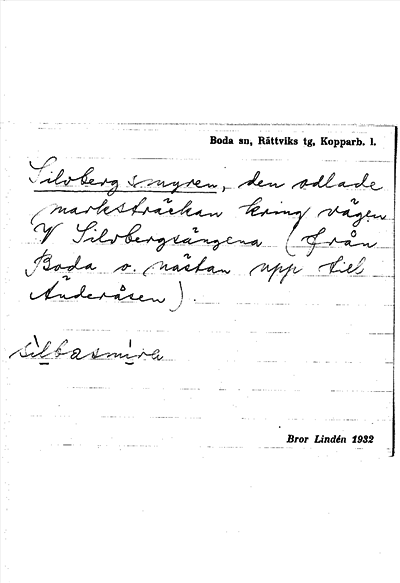 Boda sn, Rättviks tg, Kopparb. l.
Silvbergsmyren, den odlade
marksträckan kring vägen
V Silvbergsängena (från
Boda o. nästan upp till
Änderåsen).
Bror Lindén 1932